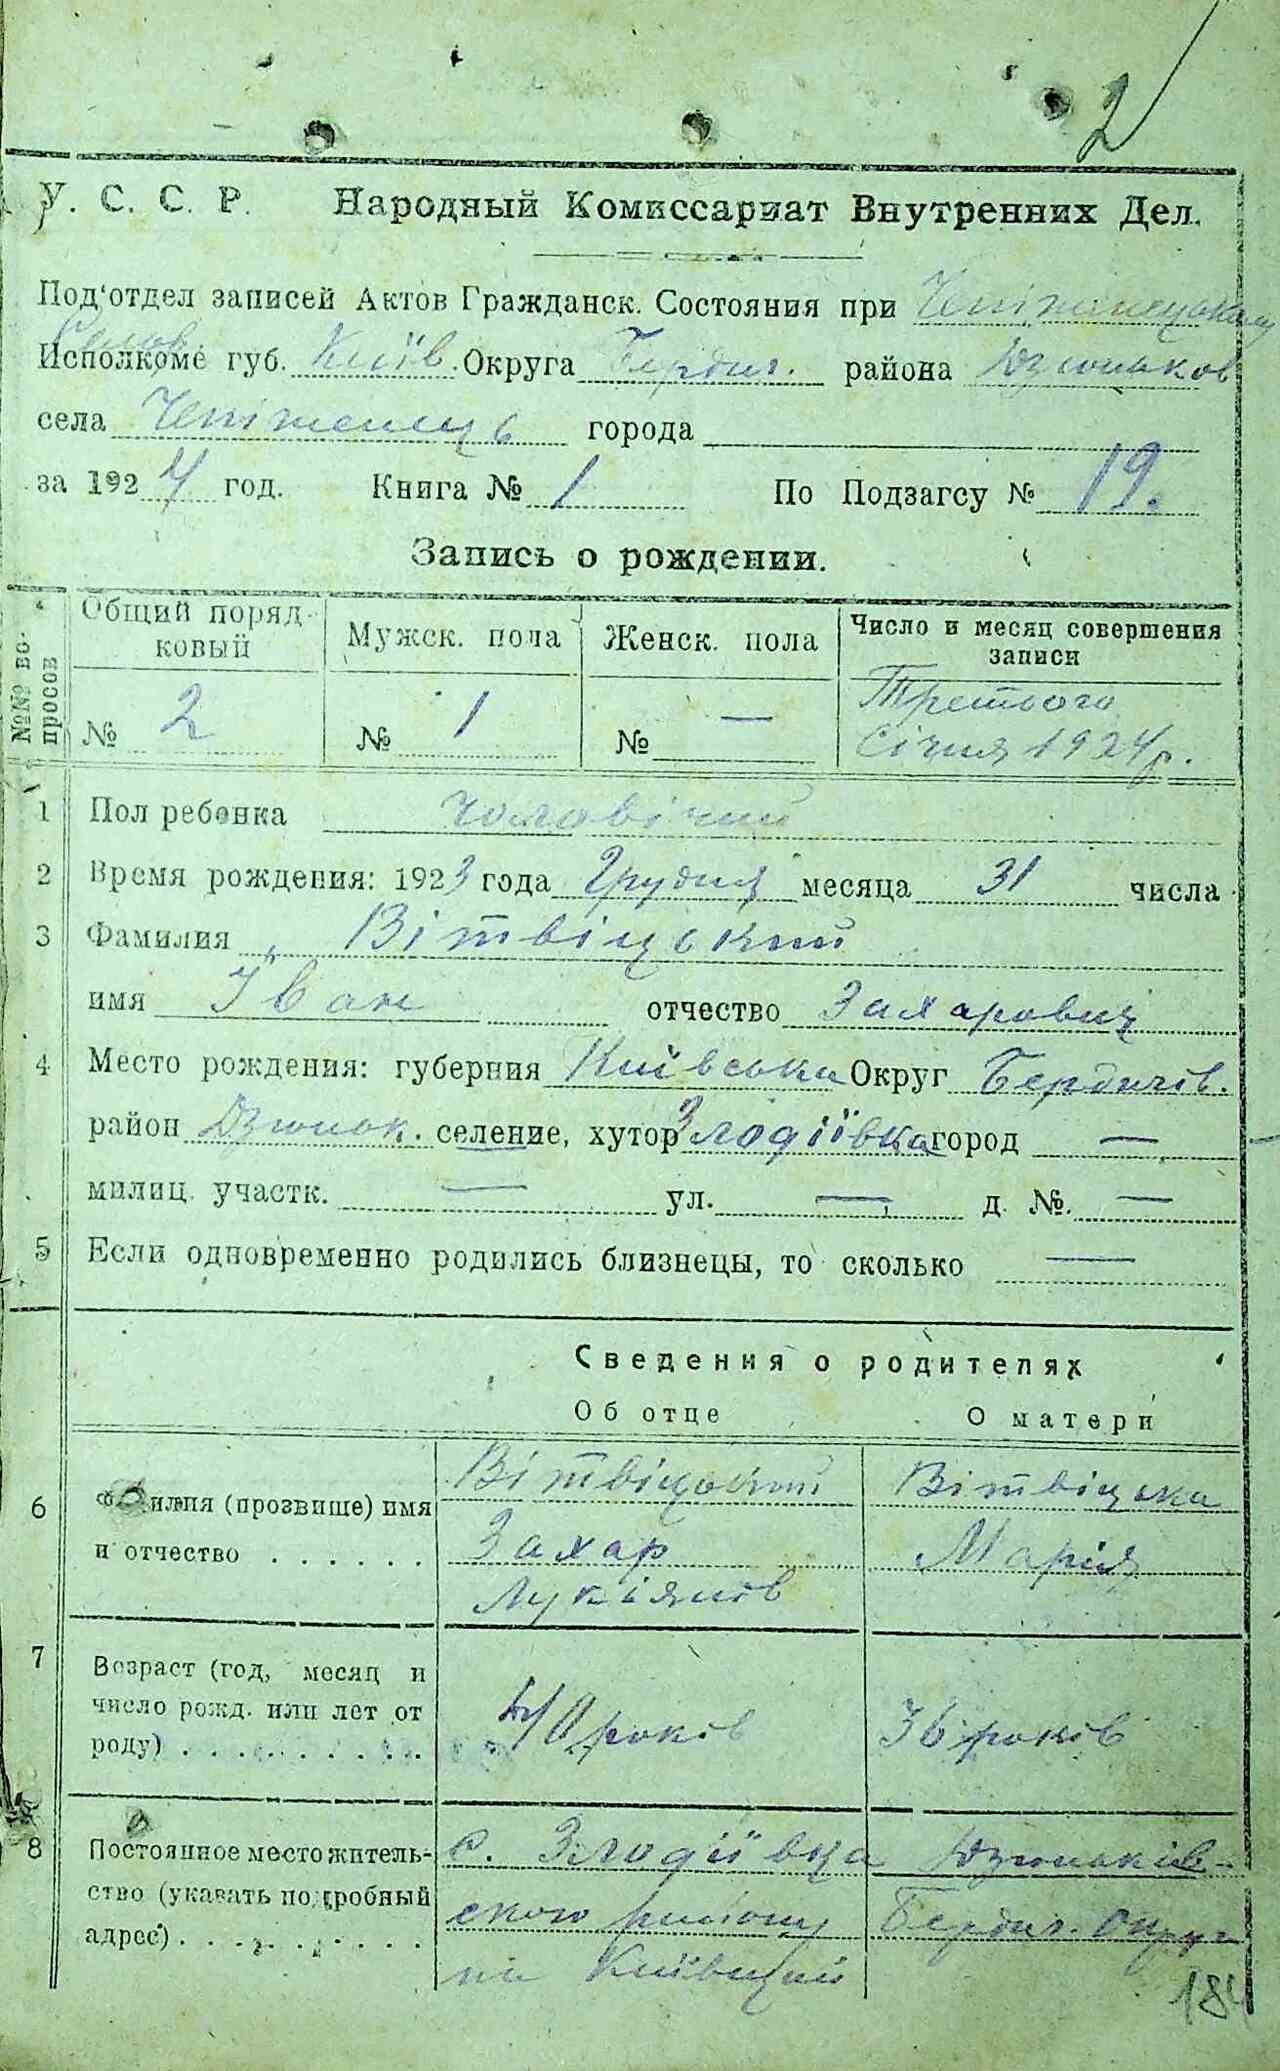 2
У. С. С. Р. Народный Комиссариат Внутренних Дел.
Под'отдел записей Актов Гражданск. Состояния при Чепіжинецькому
Исполкоме губ. Київ. Округа Бердич. района Дзюньков
села Чепіжинець города
за 1924 год. Книга № 1 По Подзагсу № 19.
Запись о рождении.
№№ вопросов
Общий порядковый Мужск. пола Женск. пола Число и месяц совершения записи
№ 2 № 1 № — Третього Січня 1924 р.
1 Пол ребенка Чоловічий
2 Время рождения: 1923 года Грудня месяца 31 числа
3 Фамилия Вітвіцький
имя Іван отчество Захарович
4 Место рождения: губерния Київська Округ Бердичів.
район Дзюньк. селение, хутор Злодіївка город —
милиц. участк. — ул. — д. №. —
5 Если одновременно родились близнецы, то сколько —
Сведения о родителях
Об отце О матери
6 Фамилия (прозвище) имя и отчество . . . . . .
Вітвіцький
Захар
Лукіянов
Вітвіцька
Марія
7 Возраст (год, месяц и число рожд. или лет от роду) . . . . . . . . .
40 років
36 років
8 Постоянное место жительство (указать подробный адрес) . . . . . . . .
с. Злодіївка Дзюньків-
ского району Бердич. округ
на Київщині
184